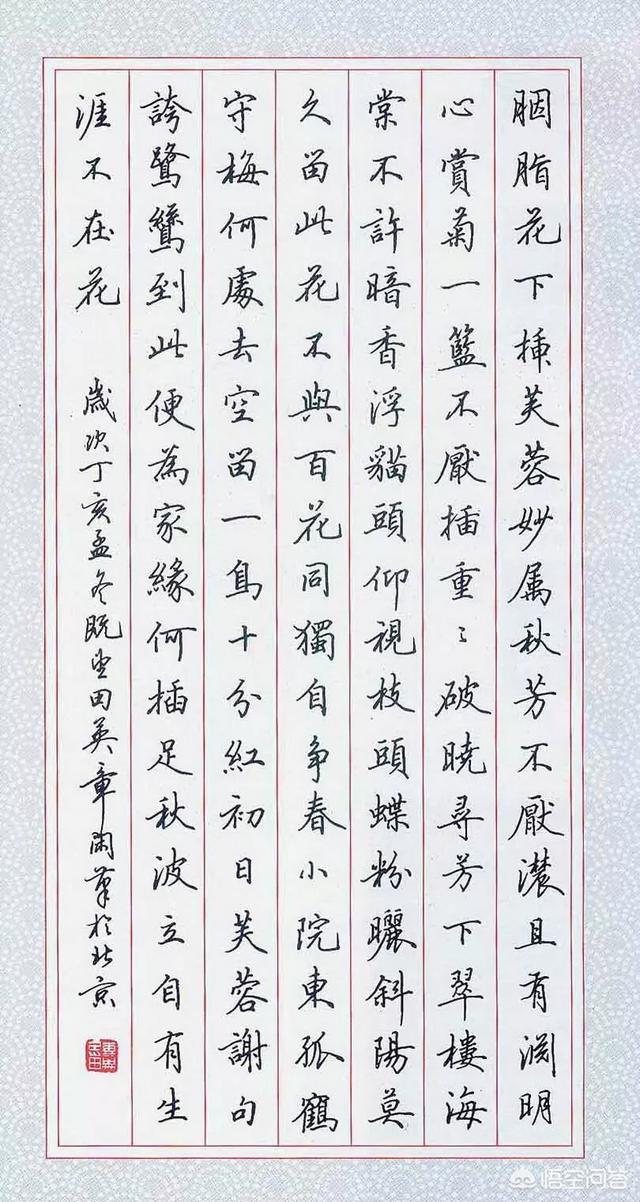 胭脂花下插芙蓉妙属秋芳不厭濃且有淵明
心賞菊一籃不厭插重〻破曉尋芳下翠樓海
棠不許暗香浮貓頭仰視枝頭蝶粉曬斜陽莫
久留此花不與百花同獨自争春小院東孤鶴
守梅何處去空留一鳥十分紅初日芙蓉謝句
誇鷺鷥到此便為家緣何插足秋波立自有生
涯不在花
歲次丁亥孟冬既望田英章閑筆於北京
悟空问答